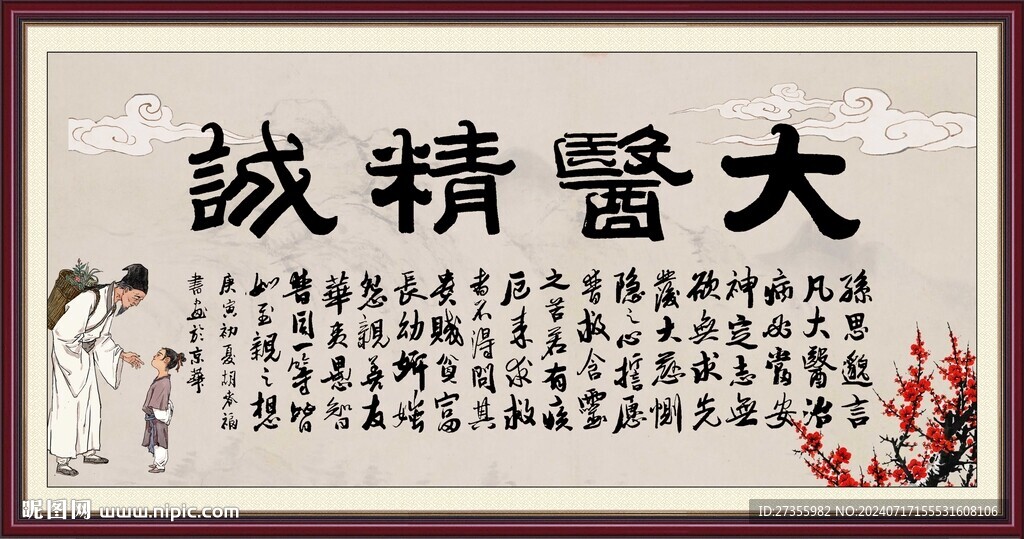 大醫精誠
孫思邈言
凡大醫治
病必當安
神定志無
欲無求先
發大慈惻
隱之心誓愿
普救含靈
之苦若有疾
厄来求救
者不得問其
貴賤貧富
長幼妍媸
怨親善友
華夷愚智
普同一等皆
如至親之想
庚寅初夏胡春福
書畫於京華
昵图网 www.nipic.com
ID:27355982 NO:20240717155531608106